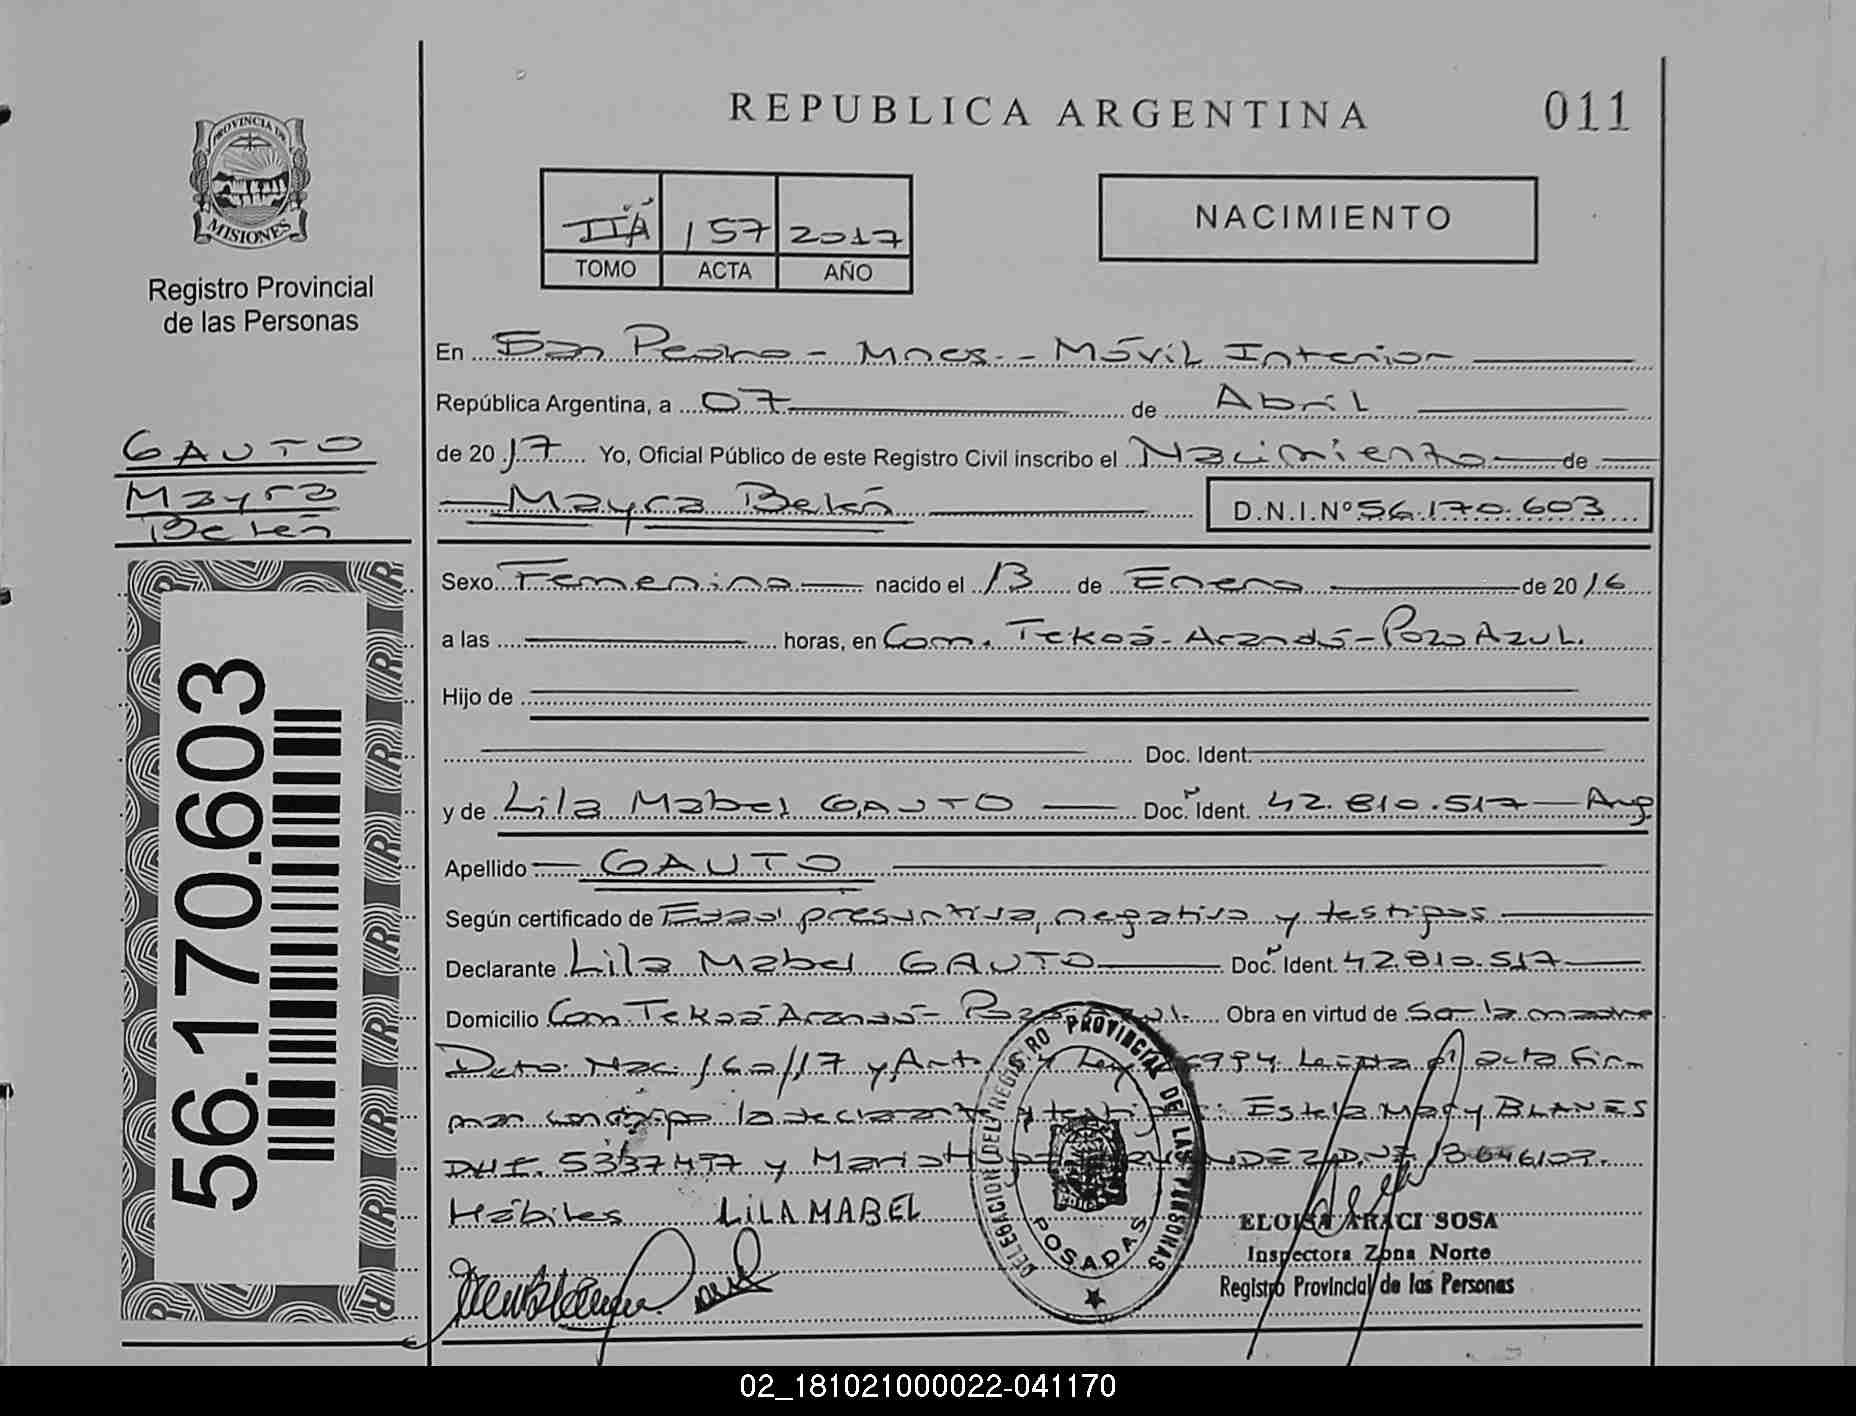 REPUBLICA ARGENTINA
011
PROVINCIA DE
MISIONES
Registro Provincial
de las Personas
IIA 157 2017
TOMO ACTA AÑO
NACIMIENTO
En San Pedro - Mnes. - Móvil Interior
República Argentina, a 07 de Abril
de 2017 Yo, Oficial Público de este Registro Civil inscribo el Nacimiento de
Mayra Belén D.N.I.Nº 56.170.603
GAUTO
Mayra
Belén
Sexo Femenino nacido el 13 de Enero de 2016
a las horas, en Com. Tekoá-Arandú-Pozo Azul.
Hijo de
Doc. Ident.
y de Lila Mabel GAUTO Doc. Ident. 42.810.517 Arg
Apellido GAUTO
Según certificado de Edad presuntiva, negativo y testigos
Declarante Lila Mabel GAUTO Doc. Ident. 42.810.517
Domicilio Com Tekoá Arandú - Pozo Azul. Obra en virtud de ser la madre
Dcto. Nac. 160/17 y Art. Ley Leída el acta fir
man conmigo la declarante y testigos: Estela Mary BLANES
D.N.I. 5337497 y Mario
Hábiles LILA MABEL
DELEGACION DEL REGISTRO PROVINCIAL DE LAS PERSONAS
POSADAS
ELOISA ARACI SOSA
Inspectora Zona Norte
Registro Provincial de las Personas
56.170.603
02_181021000022-041170